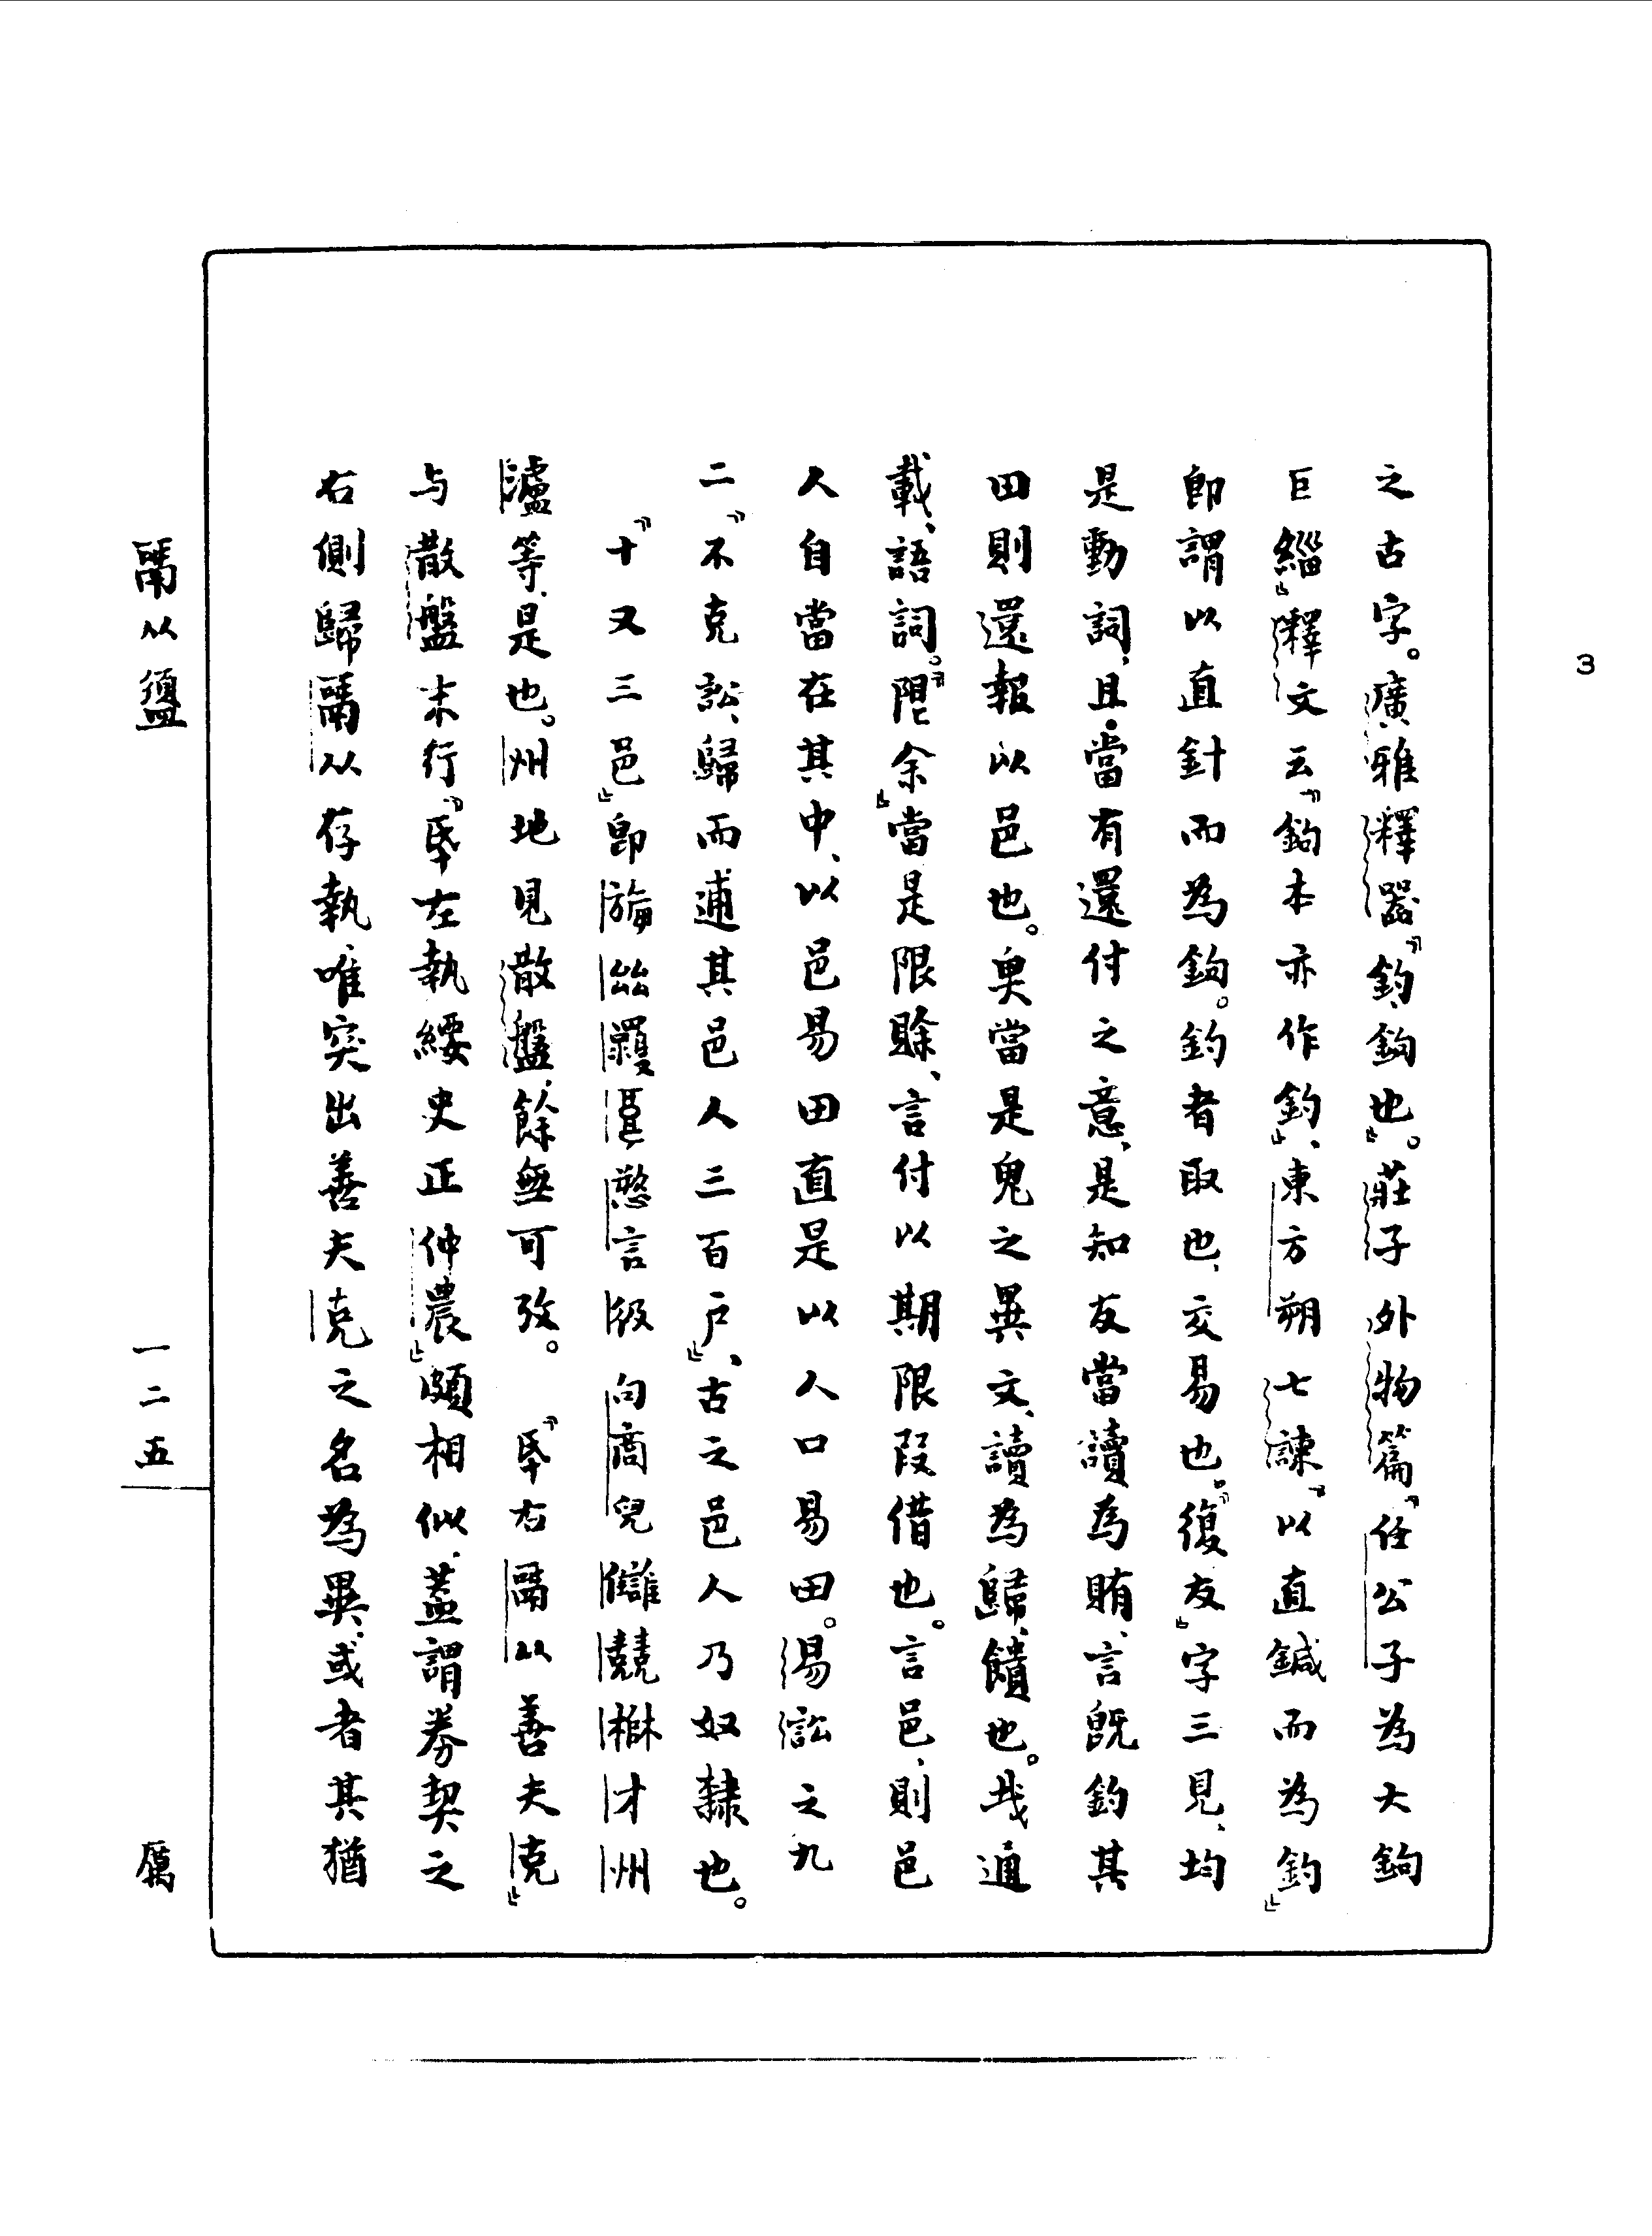 之古字。廣雅釋器『釣、鉤也』。莊子外物篇『任公子為大鉤
巨緇』釋文云『鉤本亦作釣』、東方朔七諫『以直鍼而為釣』
即謂以直針而為鉤。釣者取也、交易也。『復友』字三見、均
是動詞、且當有還付之意、是知友當讀為賄、言既釣其
田則還報以邑也。㚖當是鬼之異文、讀為歸、饋也。𢦏通
載、語詞。『限余』當是限賒、言付以期限叚借也。言邑、則邑
人自當在其中、以邑易田直是以人口易田。易訟之九
二『不克訟、歸而逋其邑人三百戶』、古之邑人乃奴隸也。
『十又三邑』即 言 句商兒讎 才州
瀘等、是也。州地見散盤、餘無可攷。『氒右𩰫从善夫克』
与散盤末行『氒左執緌史正仲農』頗相似、蓋謂券契之
右側歸𩰫从存執唯突出善夫克之名為異、或者其猶
𩰫从盨
一二五
厲
3